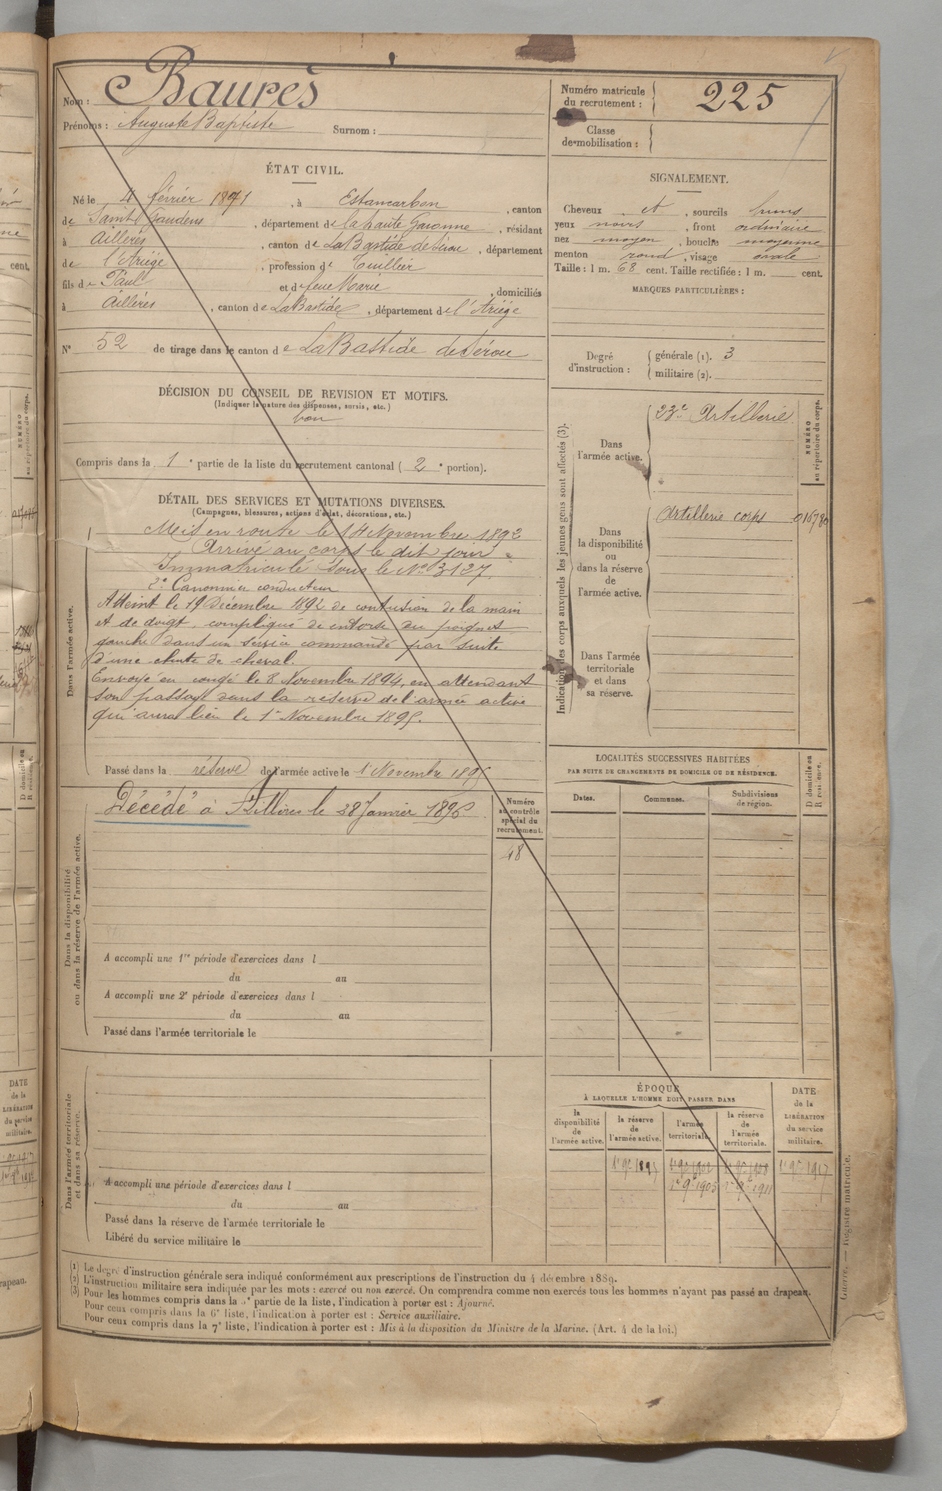 Nom : Baurès
Prénoms : Auguste Baptiste Surnom :
Numéro matricule du recrutement : 225
Classe de mobilisation :
ÉTAT CIVIL.
Né le 4 février 1871, à Estancarbon, canton
de Saint Gaudens, département de la haute Garonne, résidant
à Aillères, canton de La Bastide de Sérou, département
de l'Ariège, profession de Tuillier
fils de Paul et de feue Marie, domiciliés
à Aillères, canton de La Bastide, département de l'Ariège
N° 52 de tirage dans le canton de La Bastide de Sérou
DÉCISION DU CONSEIL DE REVISION ET MOTIFS.
(Indiquer la nature des dispenses, sursis, etc.)
bon
Compris dans la 1e partie de la liste du recrutement cantonal (2e portion).
DÉTAIL DES SERVICES ET MUTATIONS DIVERSES.
(Campagnes, blessures, actions d'éclat, décorations, etc.)
Dans l'armée active.
Mis en route le 14 Novembre 1892
Arrivé au corps le dit jour
Immatriculé sous le N° 3127.
2e Canonnier conducteur
Atteint le 19 décembre 1892 de contusion de la main
et de doigt, compliqué de entorse du poignet
gauche dans un service commandé par suite
d'une chute de cheval.
Envoyé en congé le 8 Novembre 1894, en attendant
son passage dans la réserve de l'armée active
qui aura lieu le 1er Novembre 1895.
Passé dans la réserve de l'armée active le 1 Novembre 1895
Dans la disponibilité ou dans la réserve de l'armée active.
Décédé à Aillères le 28 Janvier 1896
Numéro au contrôle spécial du recrutement.
48
A accompli une 1re période d'exercices dans l
du au
A accompli une 2e période d'exercices dans l
du au
Passé dans l'armée territoriale le
Dans l'armée territoriale et dans sa réserve.
A accompli une période d'exercices dans l
du au
Passé dans la réserve de l'armée territoriale le
Libéré du service militaire le
SIGNALEMENT.
Cheveux et, sourcils bruns
yeux noirs, front ordinaire
nez moyen, bouche moyenne
menton rond, visage ovale
Taille : 1 m. 68 cent. Taille rectifiée : 1 m. cent.
MARQUES PARTICULIÈRES :
Degré d'instruction : générale (1). 3
militaire (2).
Indication des corps auxquels les jeunes gens sont affectés (3).
NUMÉRO au répertoire du corps.
Dans l'armée active.
23e Artillerie
Dans la disponibilité ou dans la réserve de l'armée active.
Artillerie corps
Dans l'armée territoriale et dans sa réserve.
LOCALITÉS SUCCESSIVES HABITÉES
PAR SUITE DE CHANGEMENTS DE DOMICILE OU DE RÉSIDENCE.
Dates. Communes. Subdivisions de région. D domicile ou R résidence.
ÉPOQUE
À LAQUELLE L'HOMME DOIT PASSER DANS
la disponibilité de l'armée active. la réserve de l'armée active. l'armée territoriale. la réserve de l'armée territoriale. DATE de la LIBÉRATION du service militaire.
1er 9e 1895
1er 9e 1905 1er 9e 1911
(1) Le degré d'instruction générale sera indiqué conformément aux prescriptions de l'instruction du 4 décembre 1889.
(2) L'instruction militaire sera indiquée par les mots : exercé ou non exercé. On comprendra comme non exercés tous les hommes n'ayant pas passé au drapeau.
(3) Pour les hommes compris dans la partie de la liste, l'indication à porter est : Ajourné.
Pour ceux compris dans la 6e liste, l'indication à porter est : Service auxiliaire.
Pour ceux compris dans la 7e liste, l'indication à porter est : Mis à la disposition du Ministre de la Marine. (Art. 4 de la loi.)
Guerre. — Registre matricule.